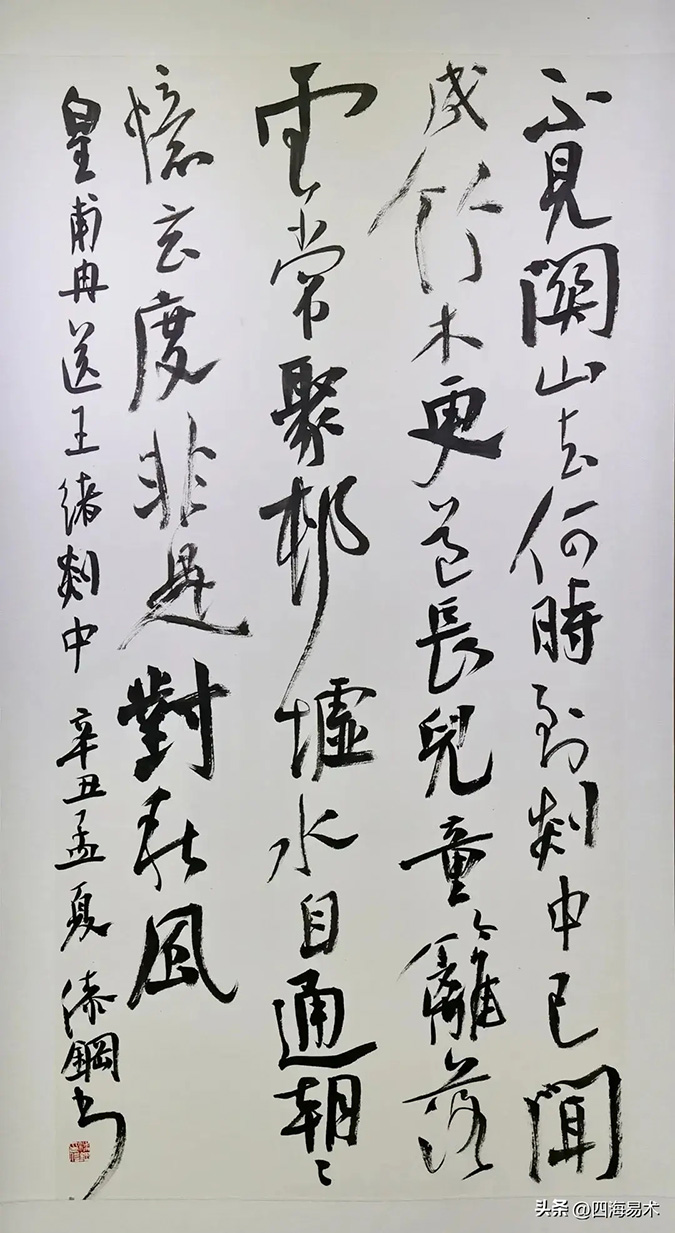 不見關山去何時到剡中已聞
成竹木更道長兒童籬落
雲常聚邨墟水自通朝〻
憶玄度非是對秋風
皇甫冉送王緒剡中 辛丑孟夏 漆鋼書
头条 @四海易木